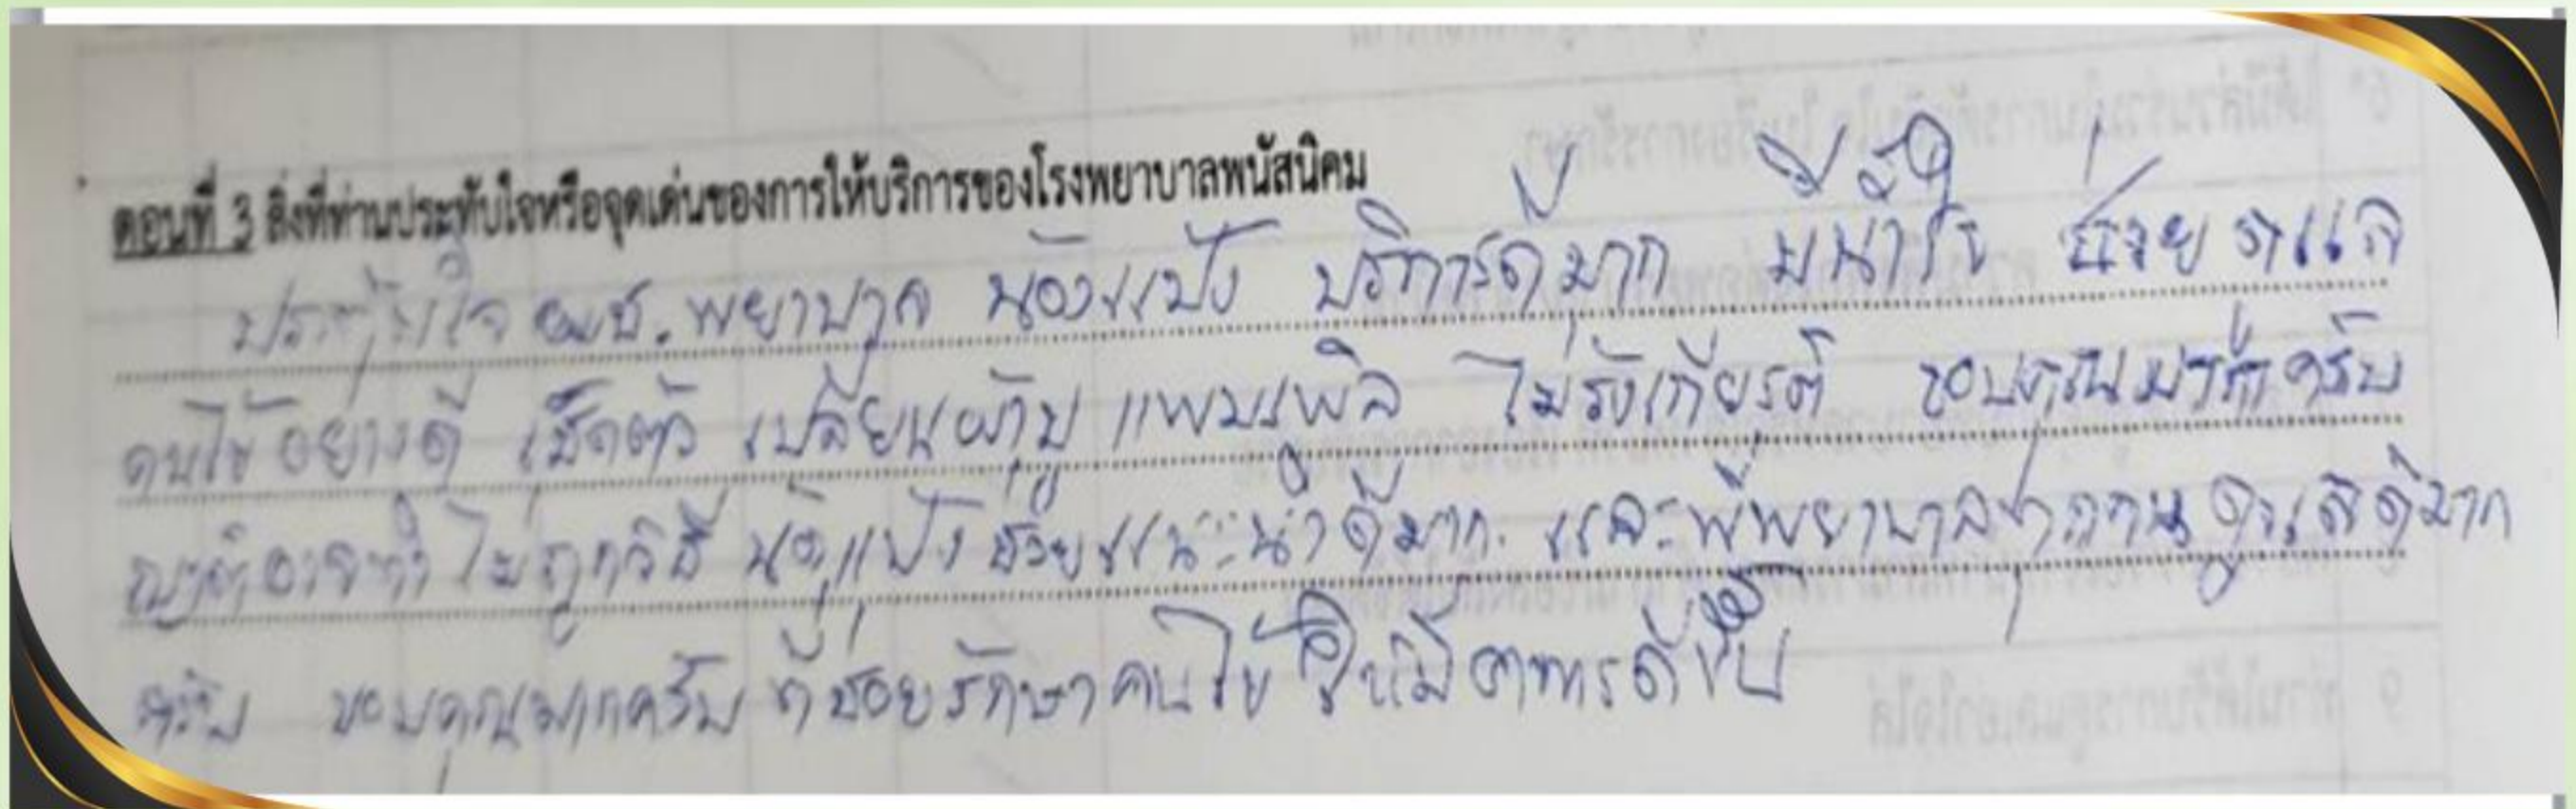 ตอนที่ 3 สิ่งที่ท่านประทับใจหรือจุดเด่นของการให้บริการของโรงพยาบาลพนัสนิคม
ประทับใจ ผมช.พยาบาล น้องแป้ง บริการดีมาก มีน้ำใจ ช่วยดูแล
คนไข้อย่างดี เช็ดตัว เปลี่ยนผ้าปู แพมเพิส ไม่รังเกียรติ ขอบคุณมากครับ
ญาติอาจทำไม่ถูกวิธี น้องแป้งช่วยแนะนำดีมาก และพี่พยาบาลทุกคนดูแลดีมาก
ครับ ขอบคุณมากครับ ที่ช่อยรักษาคนไข้ให้มีอาการดีขึ้น
6
9 ท่านได้รับการดูแลเอาใจใส่